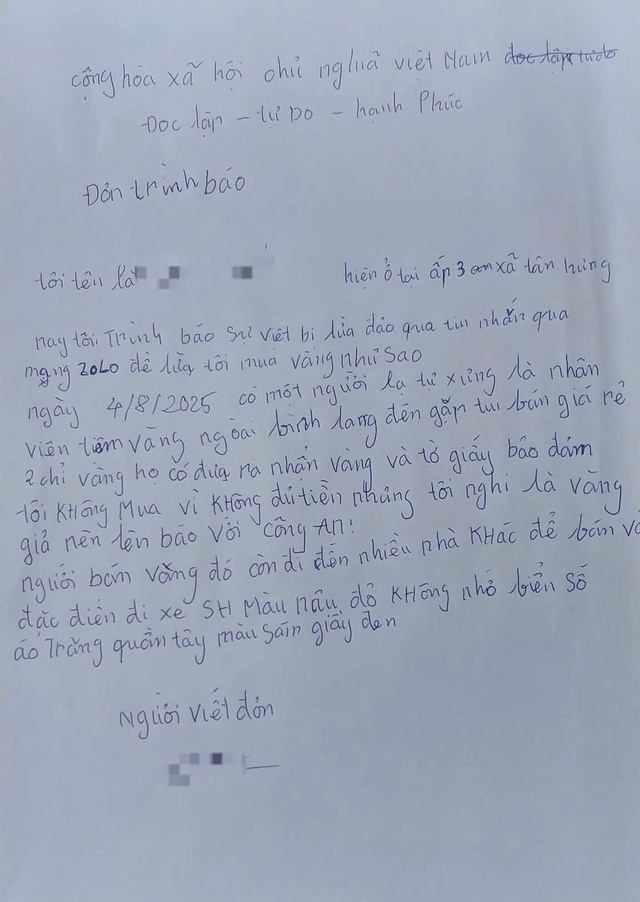 cộng hòa xã hội chủ nghĩa việt Nam doc lập tự do
Đoc lập - tự Do - hạnh Phúc
Đơn trình báo
tôi tên là hiện ở tại ấp 3 xã tân hưng
nay tôi Trình báo sự việt bị lừa đảo qua tin nhắn qua
mạng ZOLO để lừa tôi mua vàng như Sao
ngày 4/8/2025 có một người lạ tự xưng là nhân
viên tiệm vàng ngoài bình lang đến gặp tui bán giá rẻ
2 chỉ vàng họ có đưa ra nhận vàng và tờ giấy bảo đảm
tôi KHÔNG Mua vì KHÔNG đủ tiền nhưng tôi nghi là vàng
giả nên lên báo với CÔNG AN!
người bán vàng đó còn đi đến nhiều nhà KHÁC để bán và
đặc điển đi xe SH Màu nâu, đỏ KHÔNG nhỏ biển số
áo Trắng quần tây màu sãin giầy đen
Người viết đơn